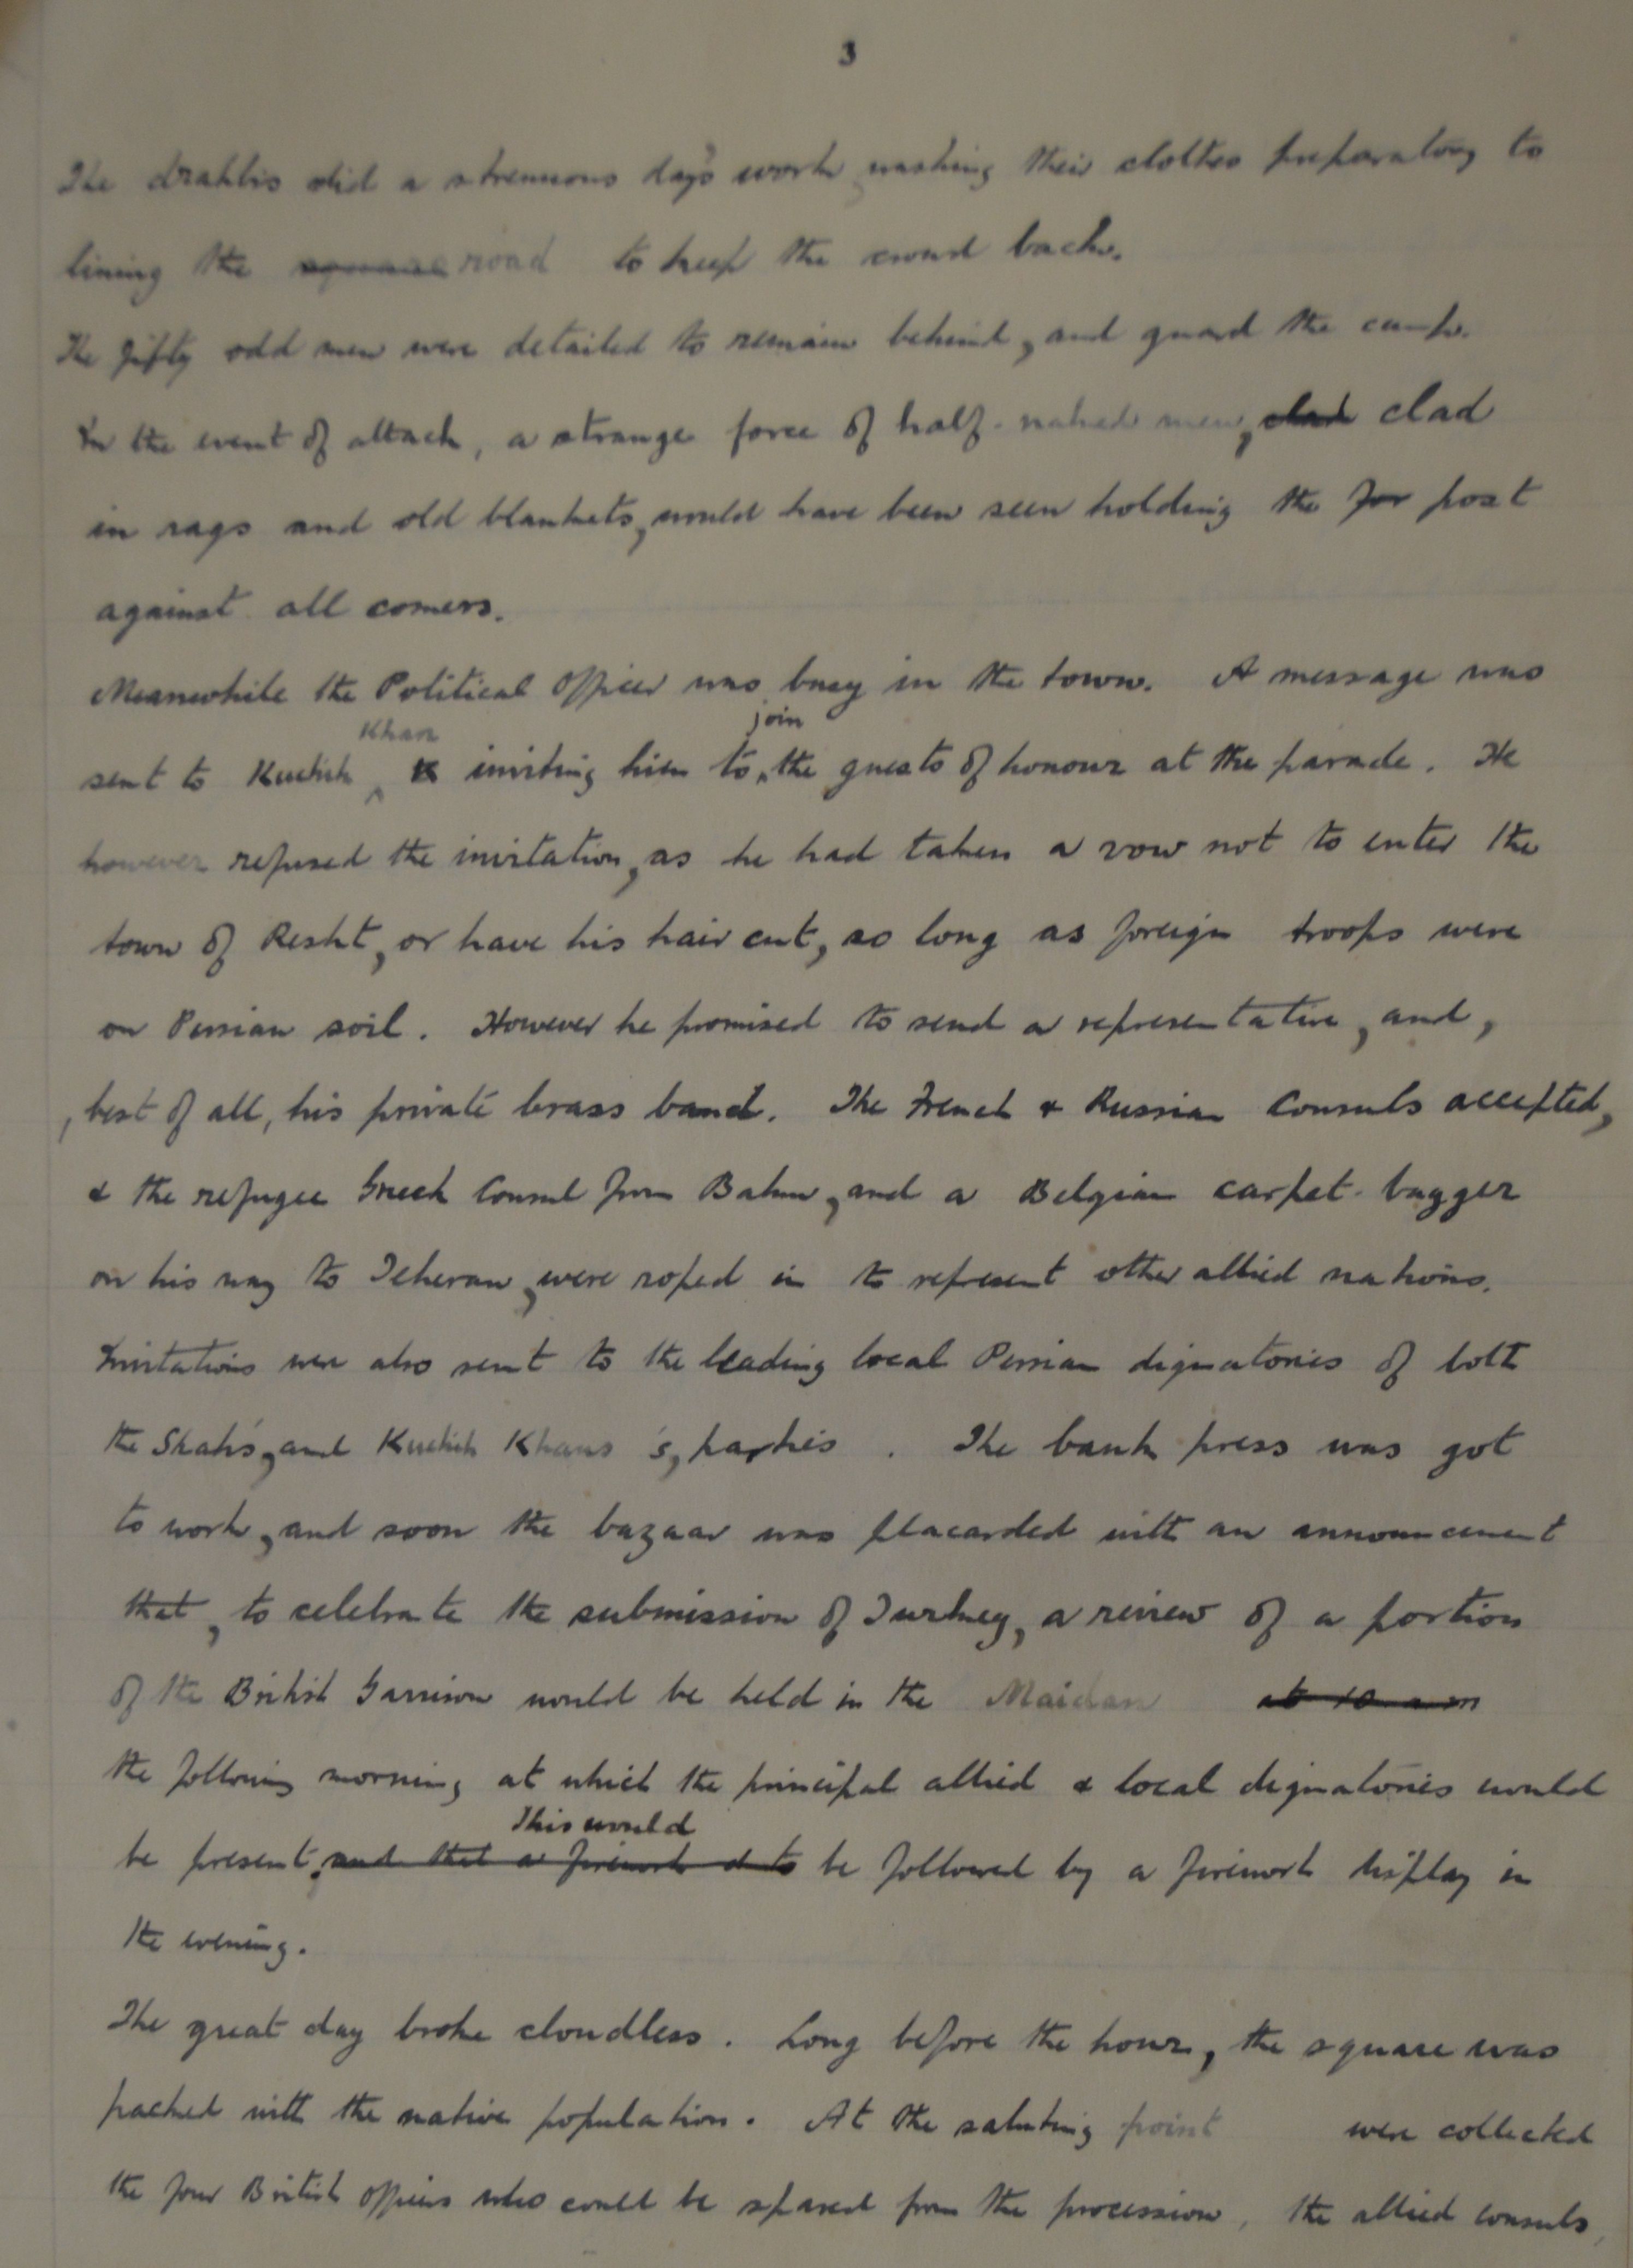 3
The drabbis did a strenuous day's work, washing their clothes preparatory to
lining the square road to keep the crowd back.
The fifty odd men were detailed to remain behind, and guard the camp.
In the event of attack, a strange force of half-naked men, clad clad
in rags and old blankets, would have been seen holding the for post
against all comers.
Meanwhile the Political Officer was busy in the town. A message was
Khan join
sent to Kuchik K inviting him to the guests of honour at the parade. He
however refused the invitation, as he had taken a vow not to enter the
town of Resht, or have his hair cut, so long as foreign troops were
on Persian soil. However he promised to send a representative, and,
, best of all, his private brass band. The French & Russian Consuls accepted,
& the refugee Greek Consul from Baku, and a Belgian carpet-bagger
on his way to Teheran, were roped in to represent other allied nations.
Invitations were also sent to the leading local Persian dignatories of both
the Shah's, and Kuchik Khans 's, parties. The bank press was got
to work, and soon the bazaar was placarded with an announcement
that, to celebrate the submission of Turkey, a review of a portion
of the British Garrison would be held in the Maidan at 10 a m
the following morning at which the principal allied & local dignatories would
This would
be present. and that a firework d to be followed by a firework display in
the evening.
The great day broke cloudless. Long before the hour, the square was
packed with the native population. At the saluting point were collected
the four British officers who could be spared from the procession, the allied consuls,